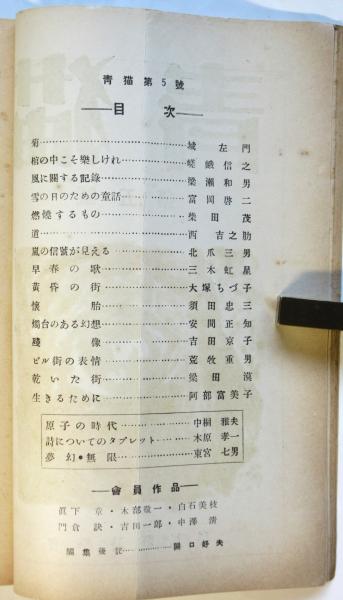 青猫第5號
目次
菊……城左門
棺の中こそ樂しけれ……嵯峨信之
風に關する記錄……梁瀬和男
雪の日のための童話……富岡啓二
燃燒するもの……柴田茂
道……西吉之助
嵐の信號が見える……北爪三男
早春の歌……三木虹星
黃昏の街……大塚ちづ子
懷胎……須田忠三
燭台のある幻想……安間正知
殘像……吉田京子
ビル街の表情……荒牧重男
乾いた街……梁田漠
生きるために……阿部富美子
原子の時代……中桐雅夫
詩についてのタブレット……木原孝一
夢幻●無限……東宮七男
會員作品
眞下章・木部敬一・白石美枝
門倉訣・吉田一郎・中澤清
編集後記……關口好夫